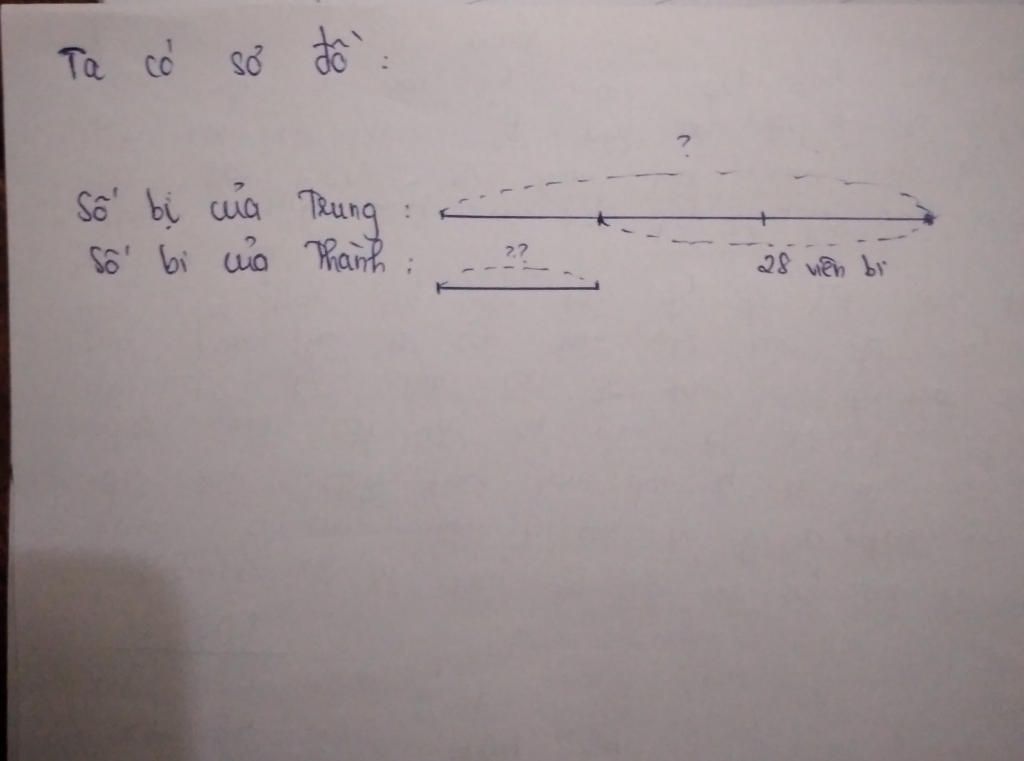 Ta có sơ đồ :
?
Số bi của Trung :
28 viên bi
Số bi của Thành :
??